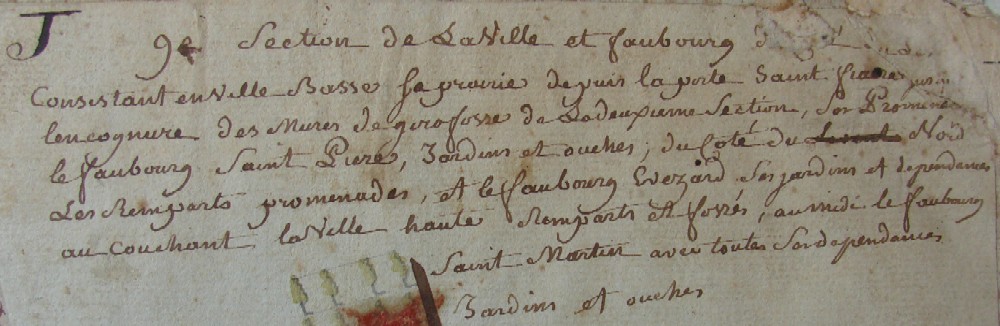 J 9e Section de LaVille et faubourg
Consistant en Ville Basse Sa prairie depuis la porte Saint
lencognure des Mures de girofosse de La deuxieme Section, Ses
le faubourg Saint Pieré, Jardins et ouches, du Coté du Levant Nord
Les Remparts promenades, et le faubourg Evezard Ses jardins et dependances
au Couchant la Ville haute Remparts et fossés, au midi le faubourg
Saint Martin avec toutes Ses dependances
Jardins et ouches